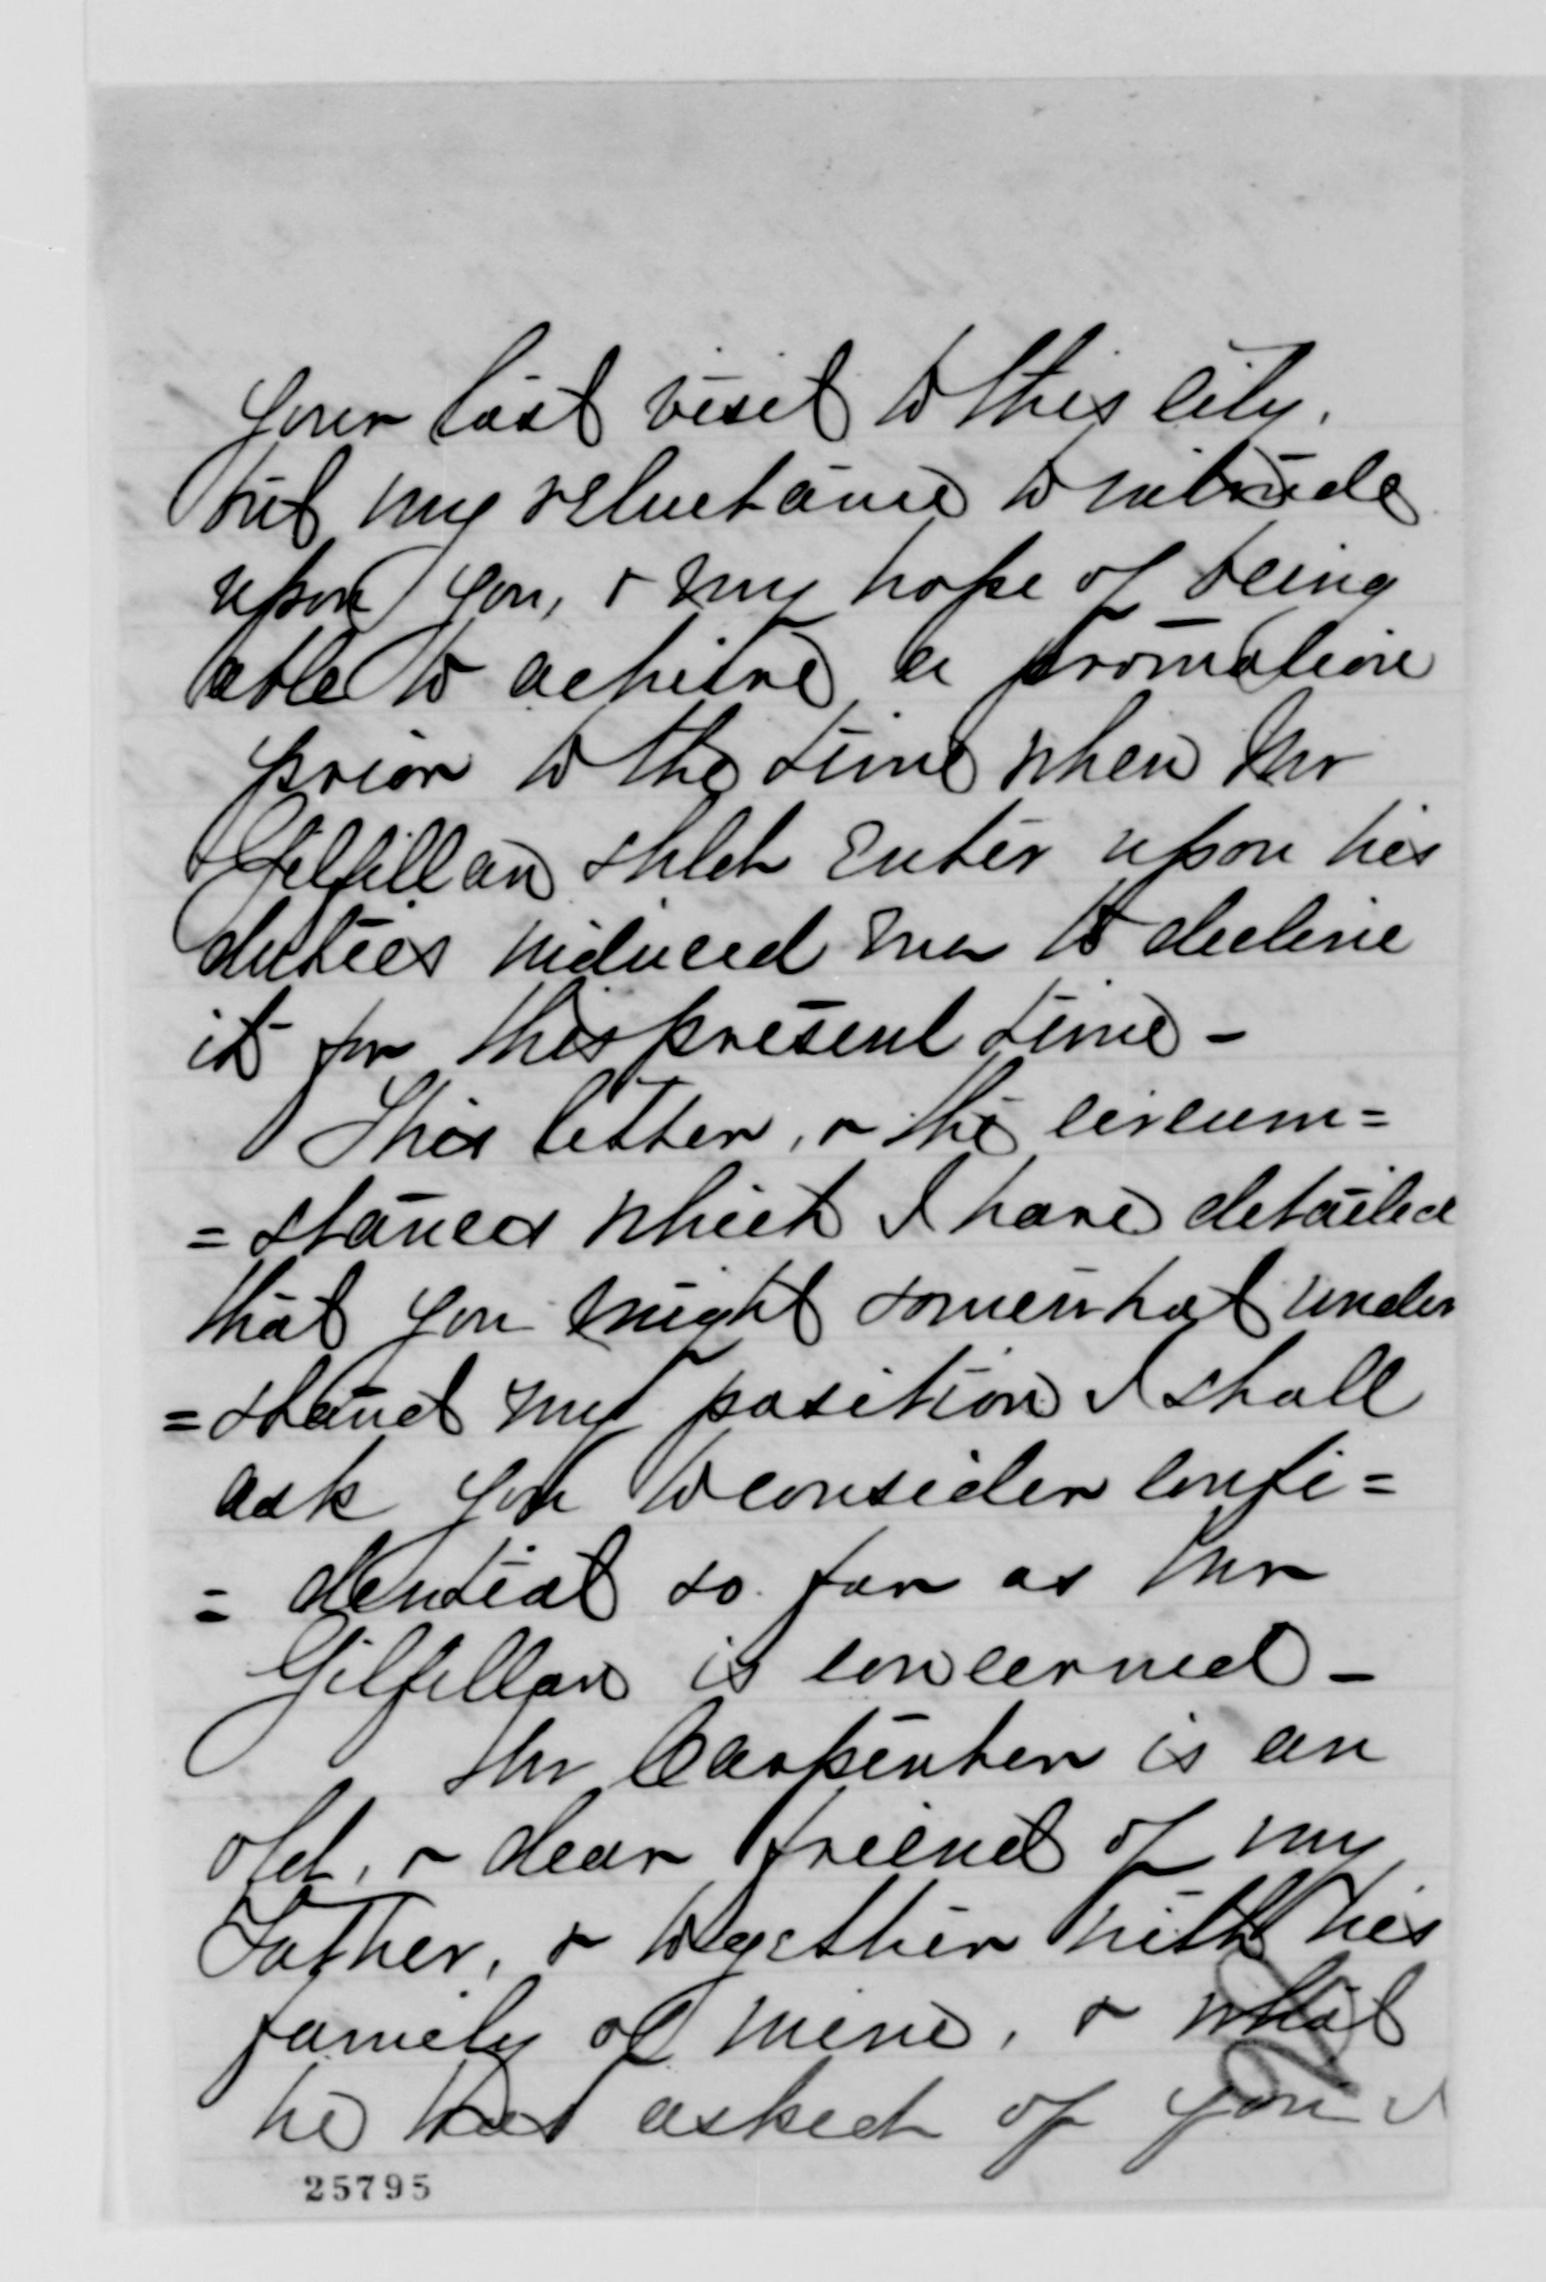 your last visit to this city.
but my reluctance to intrude
upon you, & my hope of being
able to achieve a promotion
prior to the time when Mr
Gilfillan shld enter upon his
duties induced me to decline
it for this present time -
This letter, & the circum=
=stances which I have detailed
that you might somewhat under
=stand my position I shall
ask you to consider confi=
=dential so far as Mr
Gilfillan is concerned -
Mr Carpenter is an
old, & dear friend of my
Father, & together with his
family of mine, & what
he has asked of you I
25795